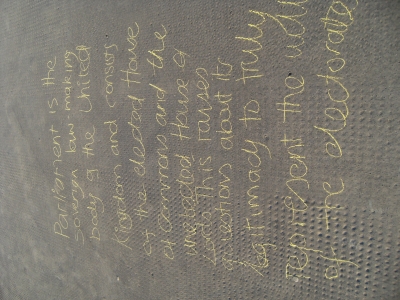 Parliament is the
soveregn law-making
body of the United
Kingdom and consists
of the elected House
of commons and the
unelected House of
Lords. This raises
questions about its
legitimacy to truly
represent the will
of the electorate